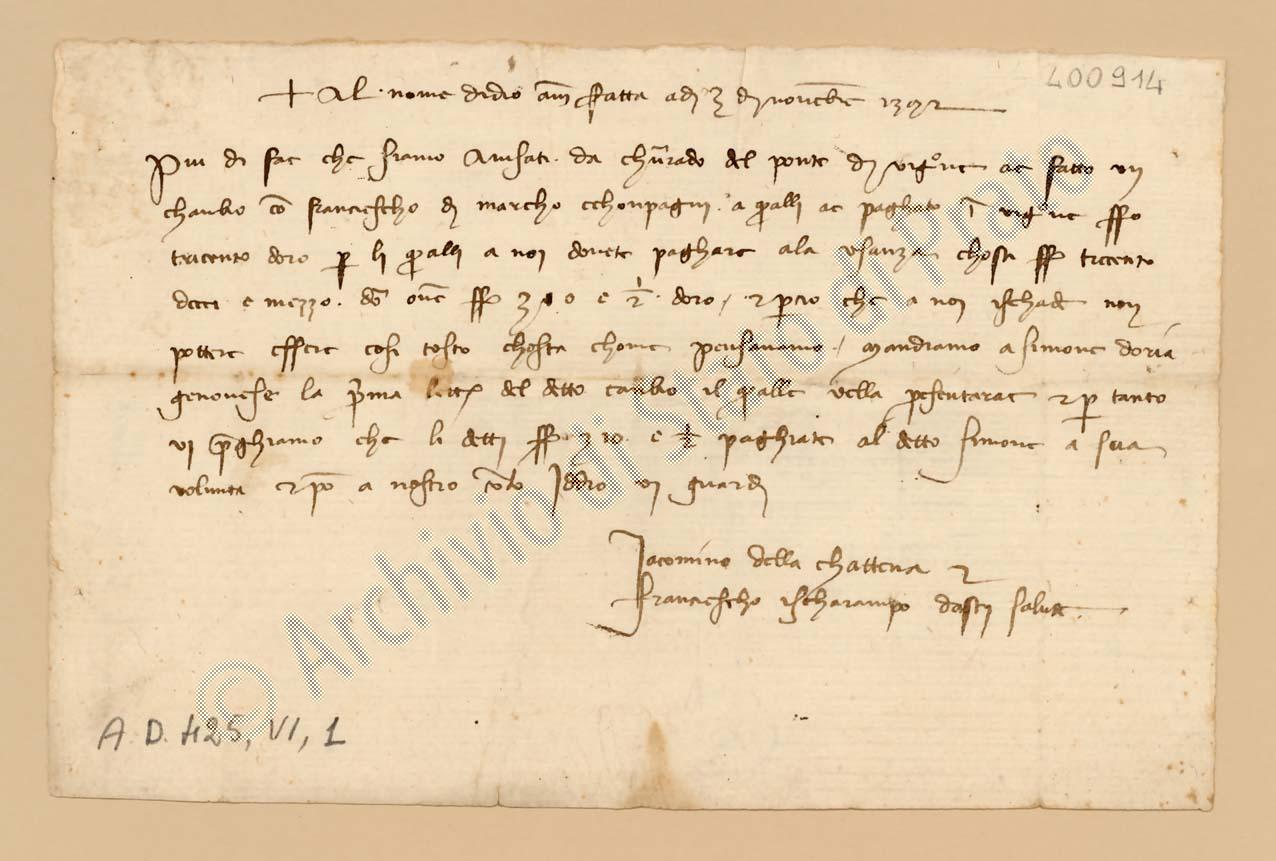 400914
+ Al nome didio am fatta adj 3 dj novenbre 1392
Piu dj fae che siamo avisati da churado del ponte dj vignone ae fatto un
chanbio co francescho dj marcho e chonpagni a quali ae paghato i vignone ff
trecento doro per li quali a noi dovete paghare ala usanza chosti ff trecento
dieci e mezzo ff 310 e 1/2 doro e percio che a noi ischade non
pottere essere cosi tosto chosta chome pensavamo mandiamo a simone doria
genovese la prima lett del detto canbio il qualle vella presentarae e per tanto
vi preghiamo che li detti ff 310 e 1/2 paghiate al detto simone a sua
volunta e po a nostro conto Iddio vi guardj
Iacomino della chattena e
Francescho ischarampo dasti salute
A. D. 425, VI, 1
© Archivio di Stato di Prato